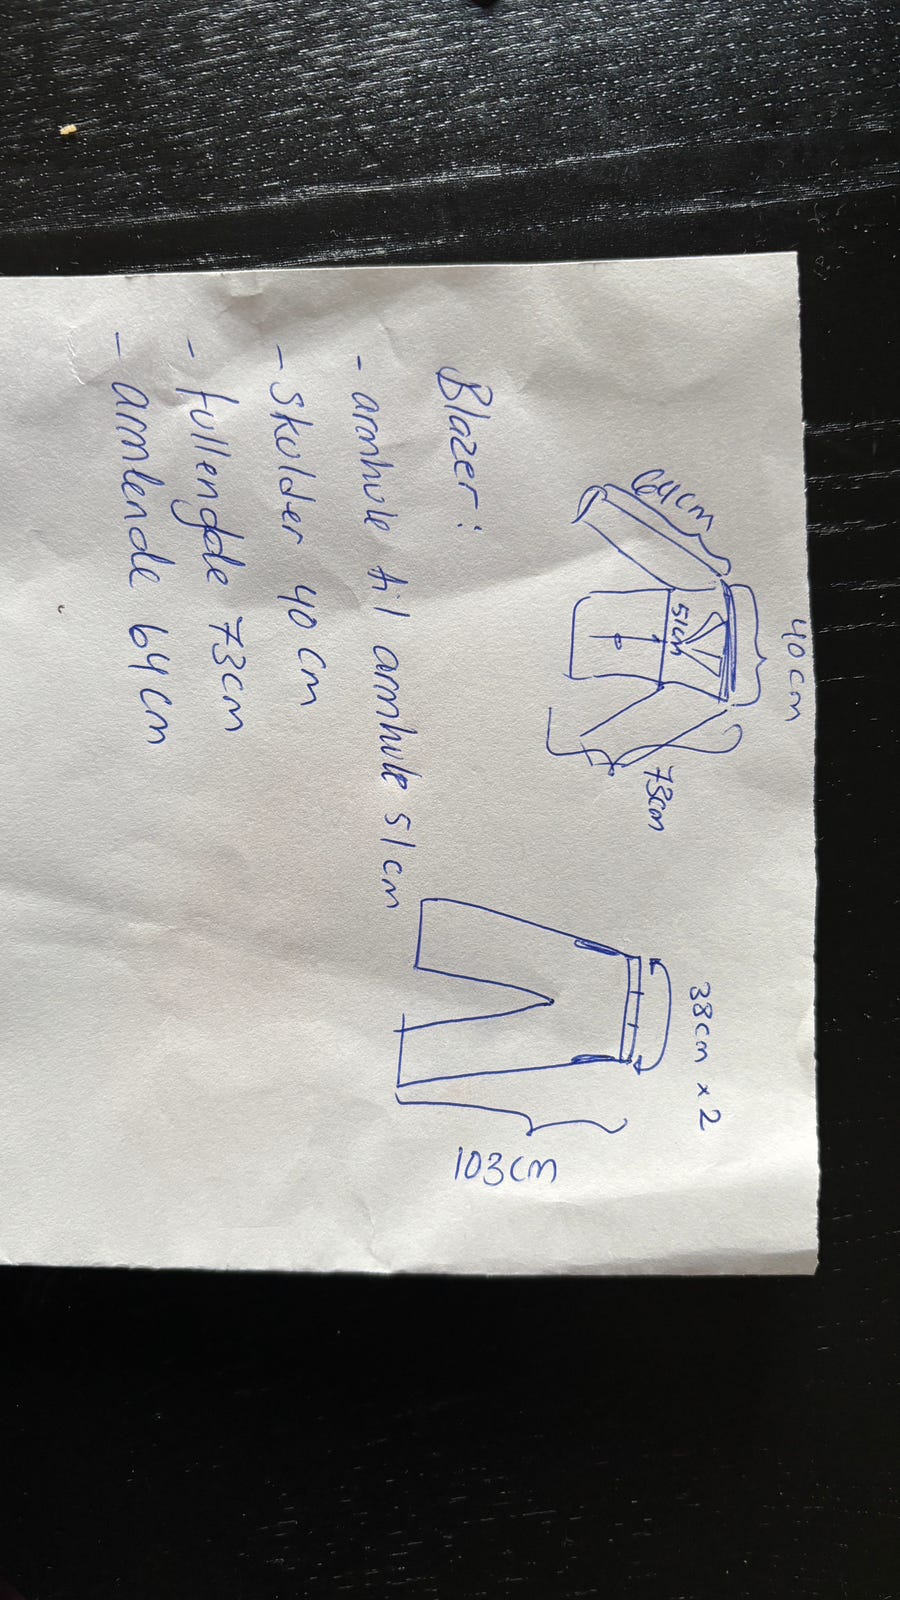 40 cm
64 cm
51cm
73cm
38cm x 2
103cm
Blazer:
- armhule til armhule 51cm
- Skulder 40 cm
- fullengde 73cm
- armlende 64cm